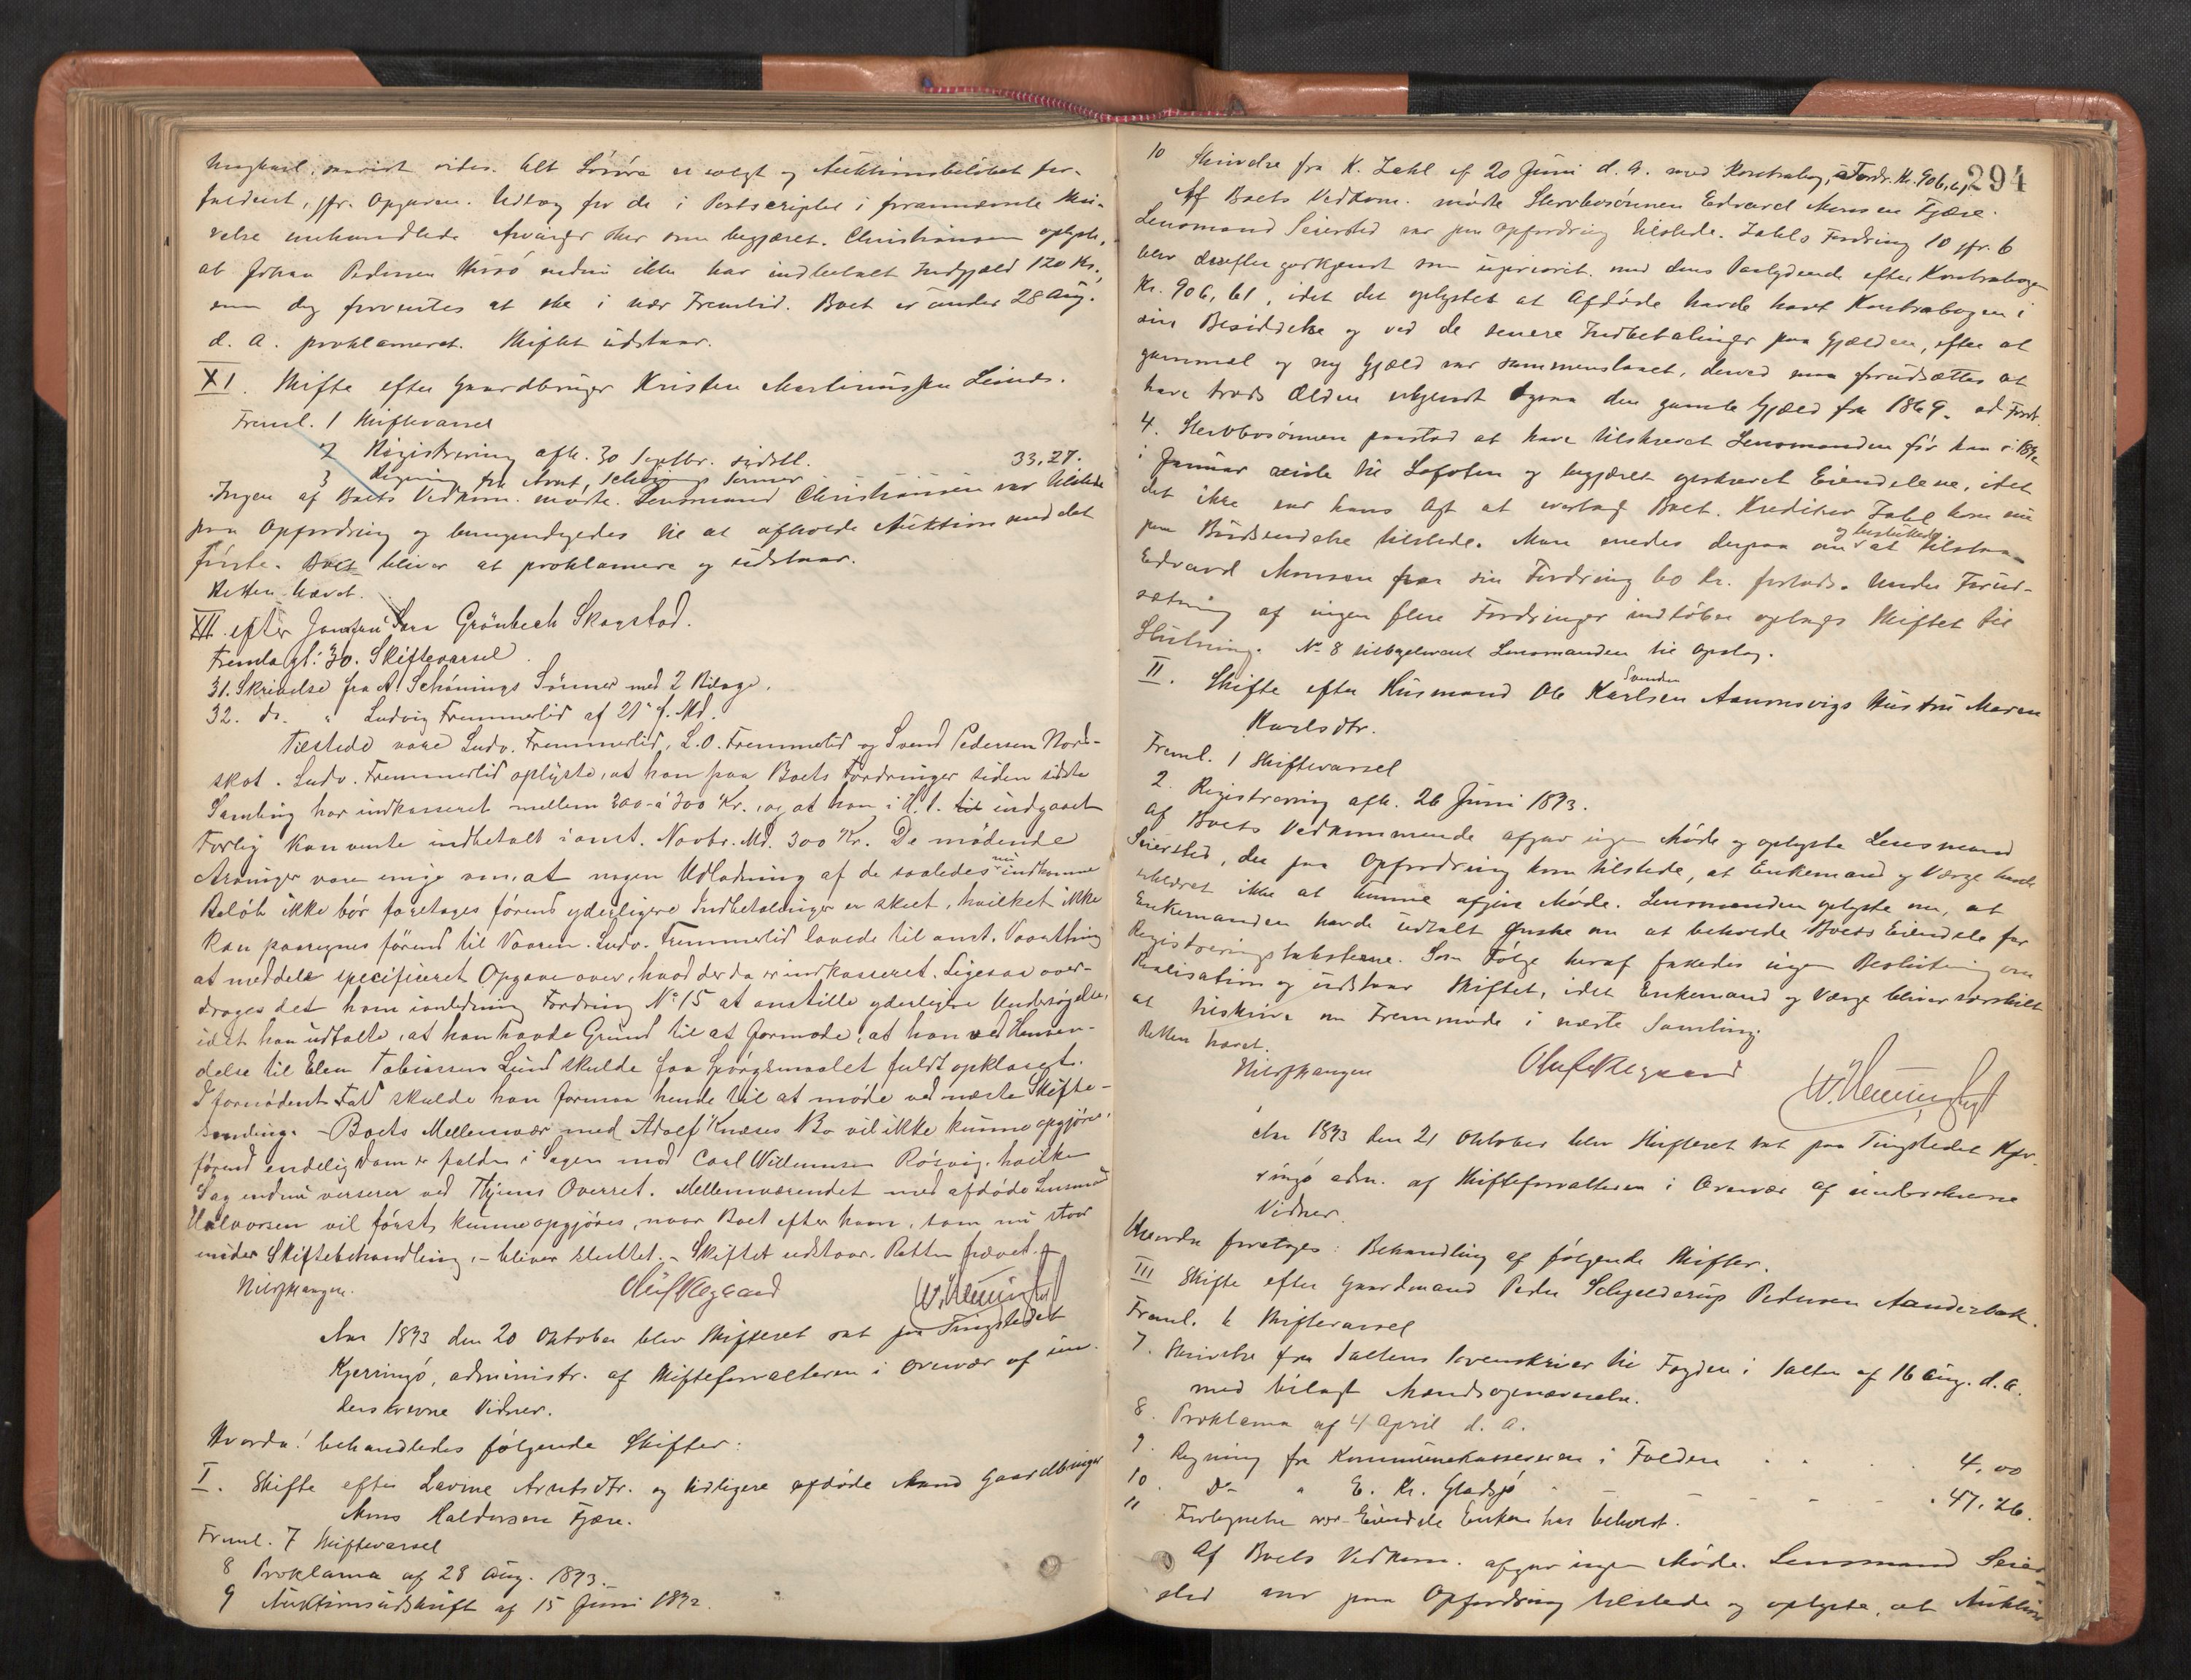 at Johan Pedersen Missö endnu ikke har indbetalt Indgjæld 120 Kr.,
som dog forventes at ske i nær Fremtid. Boet er under 28 Aug.
d. A. proklameret. Skiftet udstaar.
XI. Skifte efter Gaardbruger Kristen Martinussen Leines.
Freml. 1 Skiftevarsel
2 Registrering afh. 30 Septbr. sidstl.
3 Regning fra Arnt Schönings Sønner 33,27.
Ingen af Boets Vedkom. mødte. Lensmand Christiansen var tilstede
paa Opfordring og bemyndigedes til at afholde Auktion med det
første. Boet bliver at proklamere og udstaar.
Retten hævet.
XII. efter Jomfru Sara Grönbech Skagstad.
Fremlagt: 30. Skiftevarsel.
31. Skrivelse fra A. Schönings Sønner med 2 Bilage.
32. do. " Ludvig Fremmerlid af 21 f. Md.
Tilstede vare Ludv. Fremmerlid, L. O. Fremmerlid og Svend Pedersen Nord-
skot. Ludv. Fremmerlid oplyste, at han paa Boets Fordringer siden sidste
Samling har indkasseret mellem 200 à 300 Kr., og at han i H. t. til indgaaet
Forlig kan vente indbetalt i anst. Novbr. Md. 300 Kr. De mødende
Arvinger vare enige om, at nogen Udlodning af de saaledes nu indkomne
Beløb ikke bør foretages førend yderligere Indbetalinger er skeet, hvilket ikke
kan paaregnes förend til Vaaren. Ludv. Fremmerlid lovede til anst. Vaarthing
at meddele specificeret Opgave over, hvad der da er indkasseret. Ligesaa over-
droges det ham i anledning Fordring No 15 at anstille yderligere Undersøgelse,
idet han udtalte, at han havde Grund til at formode, at han ved Henven-
delse til Elen Tobiassen Lund skulde faa Spørgsmaalet fuldt opklaret.
I fornødent Fald skulde han formaa hende til at møde ved næste Skifte-
samling. – Boets Mellemvær med Adolf Knæses Bo vil ikke kunne opgjøres,
førend endelig Dom er falden i Sagen mod Carl Willumsen Røsvig, hvilken
Sag endnu verserer ved Thjems Overret. Mellemværendet med afdøde Lensmand
Halvorsen vil først kunne opgjøres, naar Boet efter ham, som nu staar
under Skiftebehandling, – bliver sluttet. – Skiftet udstaar. Retten hævet.
Aar 1893 den 20 Oktober blev Skifteret sat paa Tingstedet
Kjerringö, administr. af Skifteforvalteren i Overvær af un-
derskrevne Vidner.
Hvorda! behandledes følgende Skifter:
I. Skifte efter Lavine Arntsdtr. og tidligere afdøde Mand Gaardbruger
Mons Haldorsen Fjære.
Freml. 7 Skiftevarsel
8 Proklama af 28 Aug. 1893.
9 Auktionsudskrift af 15 Juni 1892.
294
10 Skrivelse fra K. Zahl af 20 Juni d. A. med Kontrabog, Fordr. Kr. 906,61
Af Boets Vedkom. mødte Stervbosönnen Edvard Monsen Fjære.
Lensmand Seiersted var paa Opfordring tilstede. Zahls Fordring 10 jfr. 6
blev derefter godkjendt som uprioret. med dens Paalydende efter Kontrabogen
Kr. 906,61, idet det oplystes at Afdøde havde havt Kontrabogen i
sin Besiddelse og ved de senere Indbetalinger paa Gjælden, efter at
gammel og ny Gjæld var sammenslaaet, derved maa forudsættes at
have trods Ælden erkjendt ogsaa den gamle Gjæld fra 1869.
4. Stervbosönnen paastod at have tilskrevet Lensmanden før han i 1892
i Januar reiste til Lofoten og begjæret opskrevet Eiendelene, idet
det ikke var hans Agt at overtage Boet. Kreditor Zahl kom nu
paa Budsendelse tilstede. Man enedes derpaa om og besluttede at tilstaa
Edvard Monsen paa sin Fordring 60 Kr. forlods. Under Forud-
sætning af ingen flere Fordringer indløber optages Skiftet til
Slutning. No 8 tilbageleveret Lensmanden til Opslag.
II. Skifte efter Husmand Ole Karlsen Aanonsvigs Hustru Maren
Karlsdtr.
Freml. 1 Skiftevarsel
2. Registrering afh. 26 Juni 1893.
Af Boets Vedkommende afgav ingen Møde og oplyste Lensmand
Seiersted, der paa Opfordring kom tilstede, at Enkemand og Værge havde
erklæret ikke at kunne afgive Møde. Lensmanden oplyste nu, at
Enkemanden havde udtalt Ønske om at beholde Boets Eiendele for
Registreringstaksterne. Som Følge heraf fattedes ingen Beslutning om
Realisation og udstaar Skiftet, idet Enkemand og Værge bliver særskilt
at tilskrive om Fremmøde i næste Samling.
Retten hævet.
Aar 1893 den 21 Oktober blev Skifteret sat paa Tingstedet Kjer-
ringö adm. af Skifteforvalteren i Overvær af underskrevne
Vidner.
Hvorda foretoges: Behandling af følgende Skifter.
III Skifte efter Gaardmand Peder Schjelderup Pedersen
Freml. 6 Skiftevarsel
7. Skrivelse fra Saltens Sorenskriver til Fogden i Salten af 16 Aug. d. A.
med bilagt Mandsopnævnelse.
8. Proklama af 4 April d. A.
9. Regning fra Kommunekassereren i Folden . . . 4,00
10. Do " E. Kr. Gladsjö - - - 47,26.
11 Fortegnelse over Eiendele Enken har beholdt.
Af Boets Vedkom. afgav ingen Møde. Lensmand Seier-
sted var paa Opfordring tilstede og oplyste, at Auktion